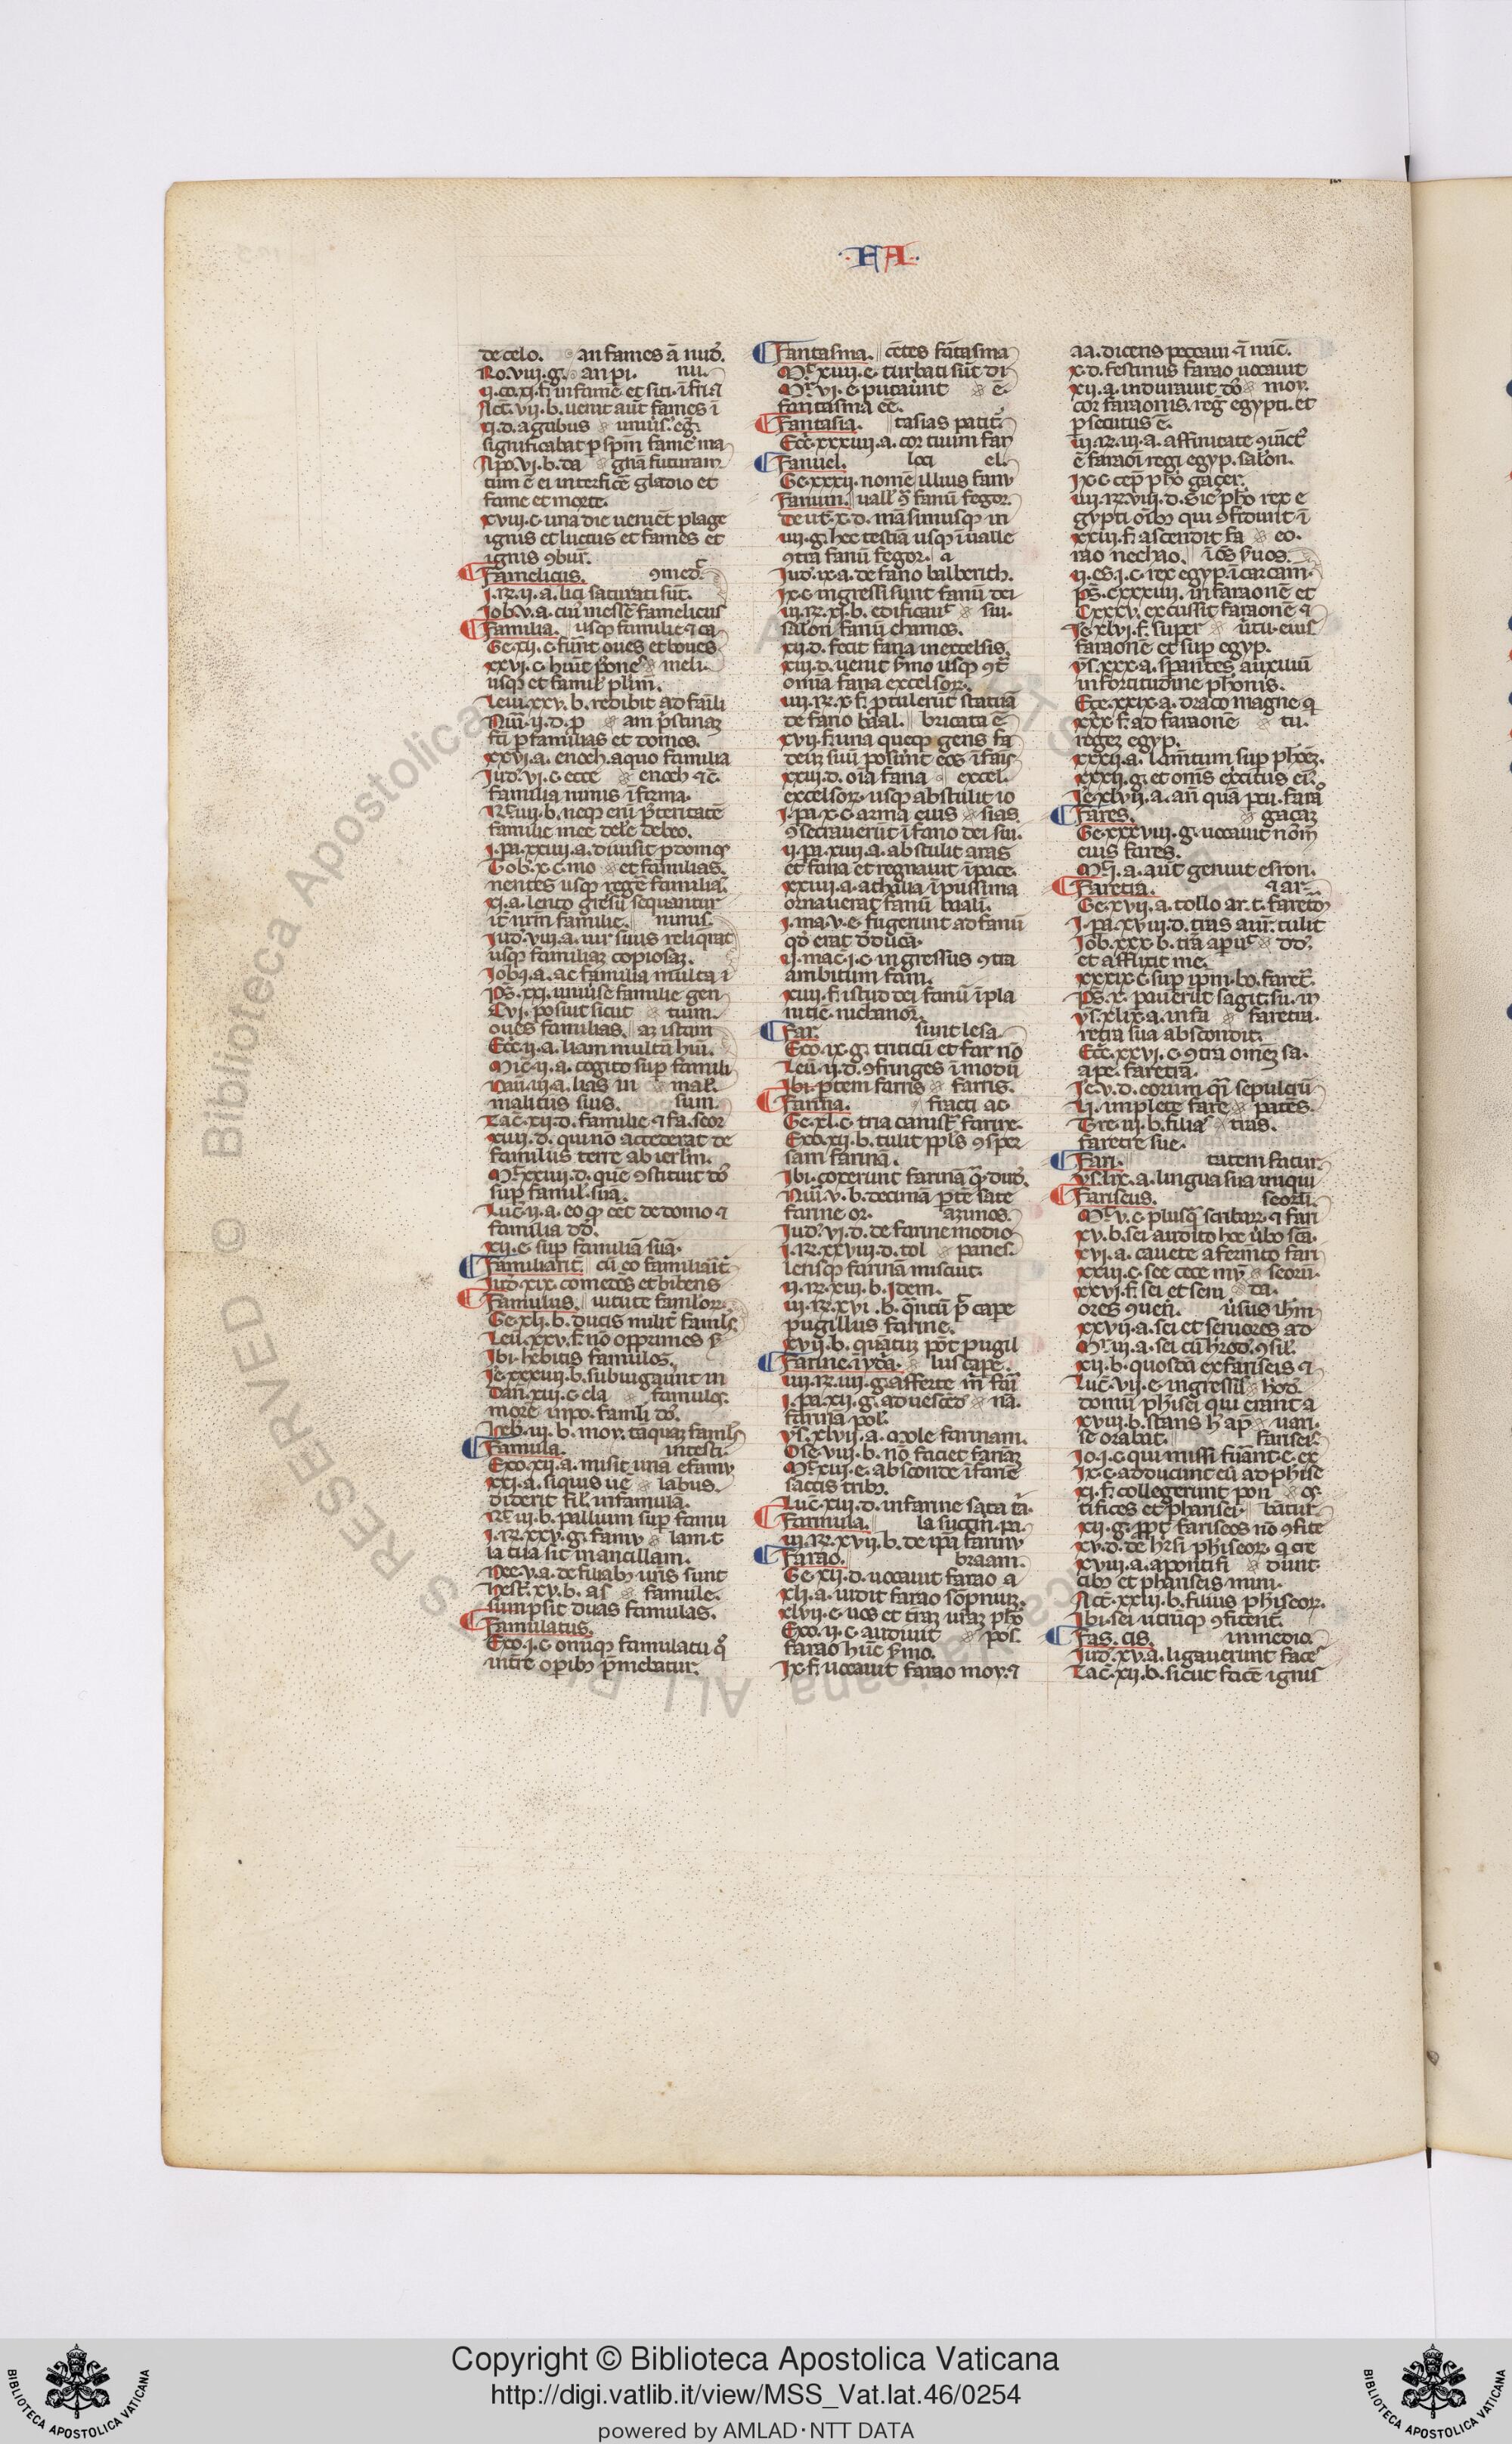 FA
de celo. an fames ā nuđ.
Ro. viii. g. an pi. nu.
ii. co. xi. f. in famē et siti. ī fri ⁊
Act̄. vii. b. uenit aūt fames ī
xi. d. agabus uniu̓s. eg̃.
significabat p sp̄m famē ma
Apo. vi. b. da gnā futuram
tum ē ei int̓ficē gladio et
fame et morte.
xviii. c. una die ueniēt plage
ignis et luctus et fames et
ignis ꝯbur̄.
Famelicus. ꝯmed
i. R. ii. a. lici saturati sūt.
Iob. v. a. cuī messē famelicus
Familia. usq; familie ⁊ ca
Ge. xii. c. fūnt oues et boues
xxvi. c. hūit meli.
usq; et famil̓ plim̄.
Leui. xxv. b. redibit ad famili
Nūi. ii. d. p am p̄stinaꝫ
fū p familias et domos.
xxvi. a. enoch. a quo familia
Iuđ. vi. c. ecce enoch ⁊c̄.
familia minis īfirma.
Rt̄. iiii. b. neq; enī pt̓eritatē
familie mee dele̓ debeo.
i. pa. xxiiii. a. diuisit p domos
Tob. x. c. mo et familias.
nentes usq; reg̓e familiā.
xi. a. lento g̓su sequantur
it̓ nr̄m familie. nimis.
Iuđ. viii. a. uir suus reliq̓rat
usq; familiaꝫ copiosaꝫ.
Iob. i. a. ac familia multa ī
Ps̄. xxi. uniu̓se familie gen
Cvi. posiut sicut tium.
oues familias. aꝫ istam
Ecc̄. ii. a. liam multā hūi.
Mic̄. ii. a. cogito sup famili
Naū. iii. a. lias in mal̓.
maliciis suis. sium.
Zac̄. xii. d. familie ⁊ fa. seor
xiiii. d. qui nō acced̓at de
famil̓us terre ab ierl̓m.
Mt̄. xxiiii. d. quē ꝯstituit dō̓
sup famil̓. suā.
Luc̄. ii. a. eo q; eēt de domo ⁊
familia dđ.
xii. e. sup familiā suā.
Familiarit̓. cū eo familiarit̓
Iuđ. xix. comedēs et bibens
Famulus. uirtute famloꝝ
Ge. xli. b. ducis milit̓ famul̓s.
Leui. xxv. f. nō opprimes
Ibi. h̓ebitis famulos.
Ie. xxxiiii. b. subiugauīt in
Dan̄. xiii. c. cla famulos.
more inpo. famli dō̓.
Heb. iii. b. moy. tāquaꝫ famul̓s
Famula. in testi.
Exo. xii. a. misit unā e famu
xxi. a. siquis ue labus.
diderit fil̓. in famulā.
Rt̄. iii. b. pallium sup famu
i. R. xxv. g. famu lam. t.
la tua sit in ancillam.
Nee. v. a. de filiab; ur̄is sunt
Hest̄. xv. b. as famule.
sūmpsit duas famulas.
Famulatus.
Exo. i. c. omīq; famulatu q̓
in t̓re opib; p̄mebatur.
Fantasma. cētes fātasma
Mt̄. xiiii. e. turbati sūt di
Mr̄. vi. e. putauīnt ē.
fantasma eē.
Fantasia. tasias patit̓
Ecc̄. xxxiiii. a. cor tuum fan
Fanuel. loci el.
Ge. xxxii. nomē illius fanu
Fanum. uall̓ ꝯ̄ fanū fegor.
Deut̄. x. d. māsimusq; in
iiii. g. hec testiā usq; ī ualle
ꝯtra fanū fegor. a
Iuđ. ix. a. de fano balberith.
ix. e. ingressi sunt fanū dei
iii. R. xi. b. edificauit sui.
salon̄ fanū chamos.
xii. d. fecit fana in excelsis.
xiii. d. uenit s̓mo usq; ꝯt̄
omīa fana excelsoꝝ.
iiii. R. x. f. ptulerūt statuā
de fano baal. bricata ē
xvii. f. una queq; gens fa
deuꝫ suū posuīnt eos ī fanis
xxiii. d. oīa fana excel.
excelsoꝝ usq; abstulit io
i. pa. x. c. arma eius sias.
ꝯsecrauerūt ī fano dei sui.
ii. pa. xiiii. a. abstulit aras
et fana et regnauit ī pace.
xxiiii. a. athalia īpiissima
ornauerat fanū baali.
i. ma. v. e. fugerunt ad fanū
qđ erat
ii. mac̄. i. c. ingressus ꝯtra
ambitum fani.
xiiii. f. istud dei fanū ī pla
nitiē. nichanoꝝ.
Far. sunt lesa.
Exo. ix. g. triticū et far nō
Leui. ii. d. ꝯfringes ī modū
Ibi. p̄tem farris farris.
Farina. fracti ac
Ge. xl. c. tria canist̓ farine.
Exo. xii. b. tulit ppl̓s ꝯsper
sam farinā.
Ibi. coxerunt farinā q̄. duđ.
Nūi. v. b. decimā p̄tē sate
farine or. azimos.
Iuđ. vi. d. de farine modio
i. R. xxviii. d. tol panes.
lensq; farinā miscuit.
ii. R. xiii. b. Idem.
iii. R. xvi. b. q̄ntū p̓ cape
pugillus farine.
xvii. b. quātuꝫ pōt pugil
Farine. i ydra. lus cape
iiii. R. iiii. g. afferte in̄ fari
i. pa. xii. g. ad uescēđ na.
farina pol̓.
ys̄. xlvii. a. mole farinam.
Ose. viii. b. nō faciet farinaꝫ
Mt̄. xiii. e. absconde ī farīe
sactis trib;.
Luc̄. xiii. d. in farine sata t̓a.
Farinula. la succin. pa.
iii. R. xvii. b. de ip̄a farinu
Farao. braam.
Ge. xii. d. uocauit farao a
xli. a. uidit farao sōpnuꝫ.
xlvii. c. uos et t̓raꝫ ur̄aꝫ phō
Exo. ii. c. audiuit pos.
farao hūc s̓mo.
ix. f. uocauit farao moy. ⁊
aa. dicens peccaui ⁊ nūc.
x. d. festinus farao uocauit
xii. a. indurauit dō̓ moy.
cor faraonis. reg egypti. et
p secutus ē.
iii. R. iii. a. affinitate ꝯiūct̓
ē faraōi regi egyp. salon.
ix. c. cep̄ phō gaçer.
iiii. R. xviii. d. sic̄ phō rex e
gypti oīb; qui ꝯfidunt ī
xxiii. f. ascendit fa eo.
rao nechao. ī oēs s̓uos.
ii. es. i. c. rex egyp. ī carcam.
Ps̄. cxxxiiii. in faraonē et
Cxxxv. excussit faraonē ⁊
Ie. xlvi. f. super u̓tu. eius
faraonē et sup egyp.
ys̄. xxx. a. sp̄antes auxiliū
in fortitudine phōnis.
Eze. xxix. a. draco magne q̓
xxx. f. ad faraonē tu.
regeꝫ egyp.
xxxii. a. lam̄tum sup phōeꝫ.
xxxii. g. et omīs exc̓itus eiꝰ.
Ie. xlvii. a. an̄ quā pcu. farao
Fares. gaçaꝫ
Ge. xxxviii. g. uocauit nōm̄
eius fares.
Mt̄. i. a. aūt genuit esron.
Faretra. ⁊ ar
Ge. xvii. a. tollo ar. t. faretrā
i. pa. xviii. d. t̓ras aur̄. tulit
Iob. xxx. b. t̓rā ap̄uit dđ.
et afflixit me.
xxxix. c. sup ip̄m. bo. faret̓.
Ps̄. x. pauerūt sagit. su. in
ys̄. xlix. a. in fa faretra.
retra sua abscondit.
Ecc̄. xxvi. c. ꝯtra omēꝫ sa.
ape. faretrā.
Ie. v. d. eorum q̄si sepulcrū
li. implete fare patēs.
Tre. iii. b. filias t̓ras.
faretre sue.
Fari. tatem fatur.
ys. lix. a. lingua sua iniqui
Fariseus. seorū.
Mt̄. v. c. plusq̄ scribaꝝ ⁊ fari
xv. b. sei audito hoc u̓bo scā.
xvi. a. cauete a fermēto fari
xxiii. c. see cece mū seorū.
xxvi. f. sei et seni da.
ores ꝯuen̄. u̓sus ihm̄
xxvii. a. sei et seniores ad
Mr̄. iii. a. sei cū hrod̓. ꝯsil̓.
xii. b. quosdā ex fariseis ⁊
Luc̄. vii. e. ingressus hrod̓.
domū pharisei qui erant a
xviii. b. stans h̓ ap̄ uan.
se orabat. farisei.
Io. i. c. qui missi fu̓ant. e. ex
ix. c. adducunt eū ad phise
xi. f. collegerunt pon os.
tifices et pharisei. bātur.
xii. g. ppt̓ fariseos nō ꝯfite
xv. d. de h̓esi phiseoꝝ. q cre
xviii. a. a pontifi dunt.
cib; et phariseis mini.
Act̄. xxiii. b. filius phiseoꝝ.
Ibi. sei utrūq; ꝯfitent̓.
Fas. cis. in medio.
Iuđ. xv. a. ligauerunt faces
Zac̄. xii. b. sicut facē ignis
Copyright © Biblioteca Apostolica Vaticana
http://digi.vatlib.it/view/MSS_Vat.lat.46/0254
powered by AMLAD·NTT DATA
BIBLIOTECA APOSTOLICA VATICANA
BIBLIOTECA APOSTOLICA VATICANA